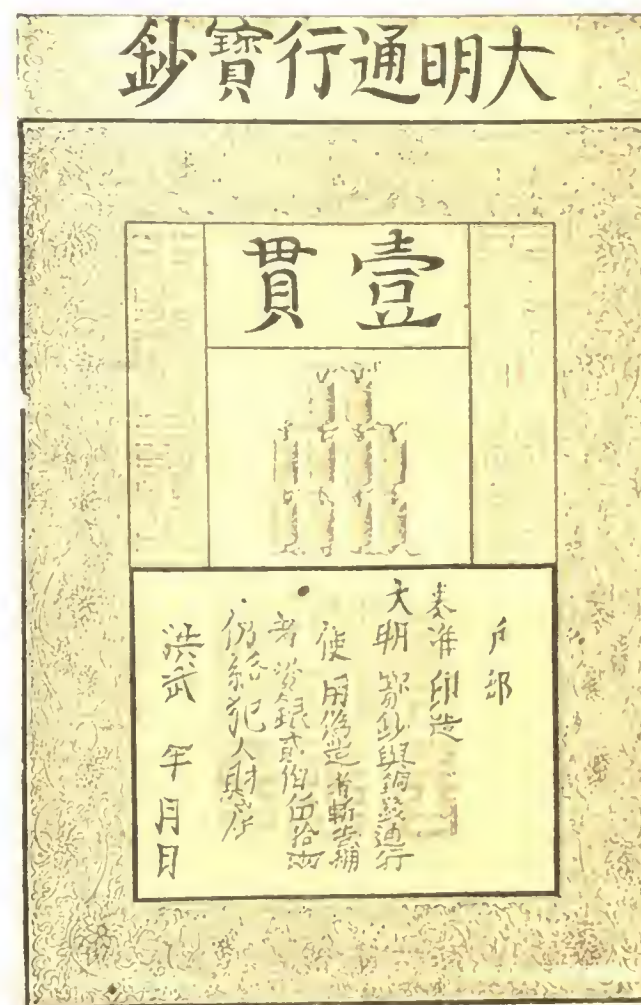 大明通行寶鈔
壹貫
户部
奏准印造
大明寶鈔與銅錢通行
使用偽造者斬告捕
者賞銀貳伯伍拾兩
仍給犯人財產
洪武 年月日